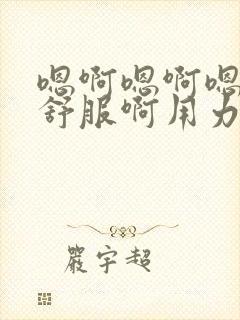 嗯啊嗯啊嗯
舒服啊用力
嚴宇超